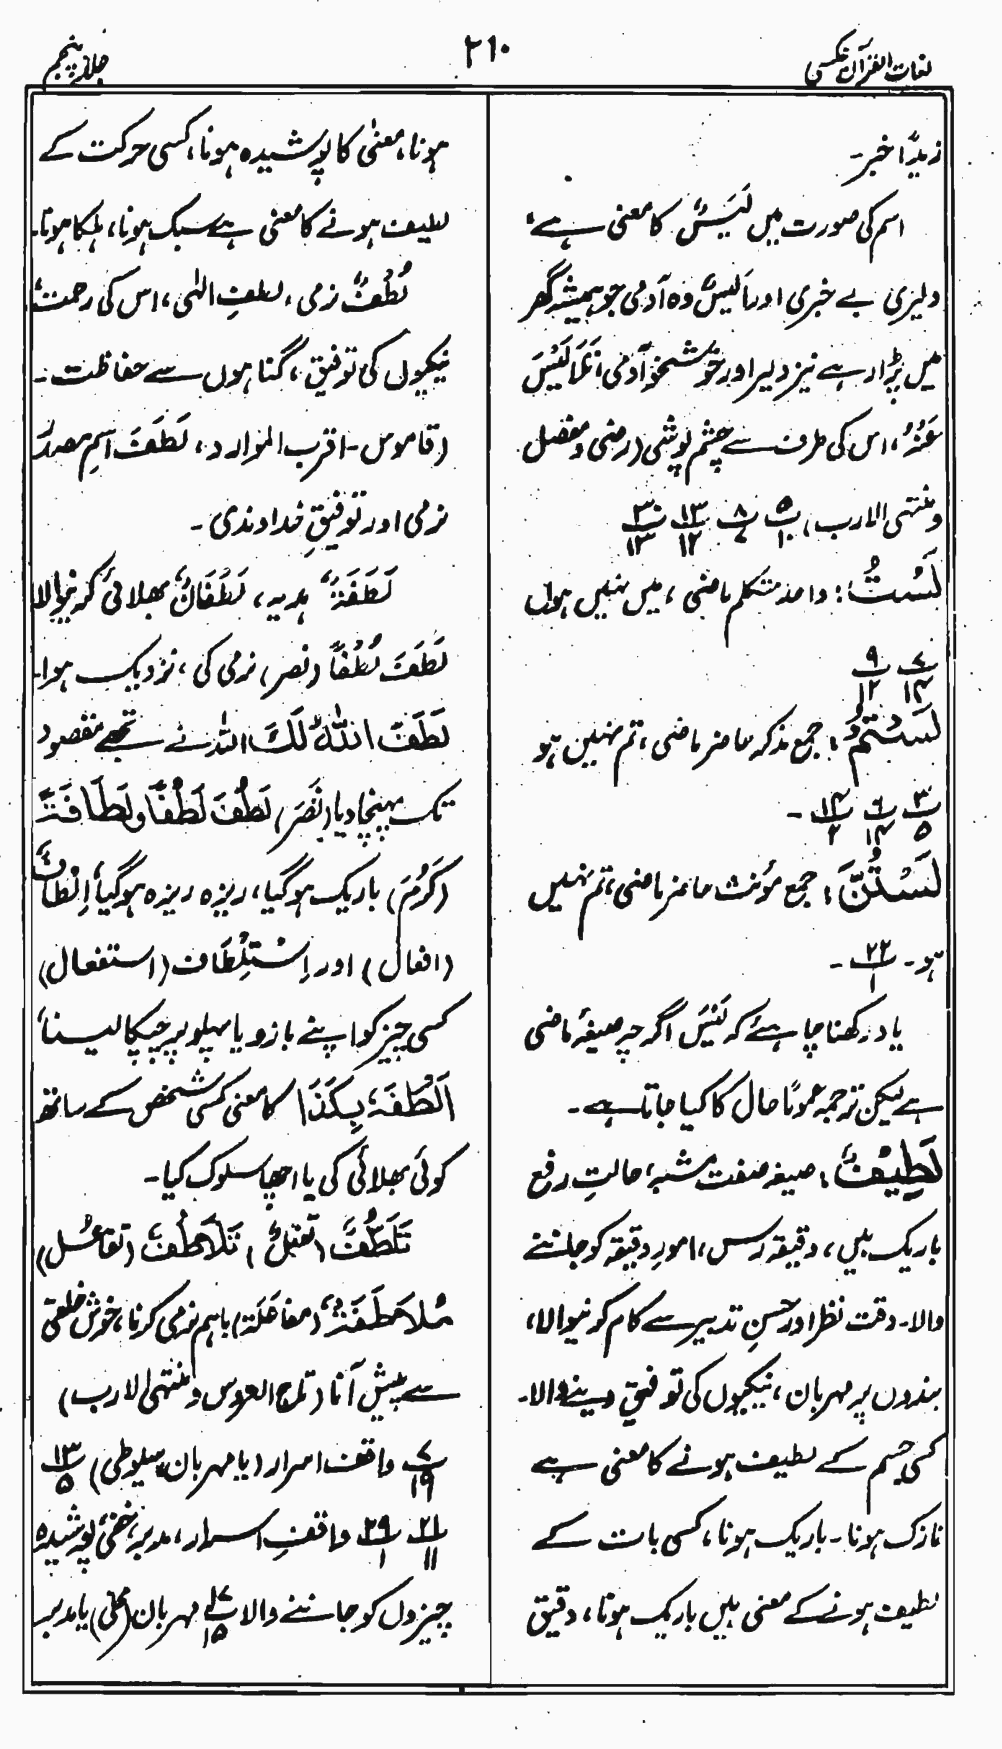 لغات القرآن عکسی
۲۱۰
جلد پنجم
زیدًا خبر۔
اسم کی صورت میں لَیْسٌ کا معنی ہے،
دلیری بے خبری اور اَلْیَسُ وہ آدمی جو ہمیشہ گھر
میں پڑا رہے نیز دلیر اور خوشخو آدمی، تَلَایَسَ
عَنْہُ، اس کی طرف سے چشم پوشی (رضی و مفصل
ومنتہی الارب) پ۵/۱۰ پ۸/۷ پ۱۳/۱۲ پ۳۰/۱۳
لَسْتُ: واحد متکلم ماضی، میں نہیں ہوں
پ۷/۱۴ پ۹/۱۲
لَسْتُمْ: جمع مذکر حاضر ماضی، تم نہیں ہو
پ۳/۵ پ۶/۱۴ پ۱۴/۲ ۔
لَسْتُنَّ: جمع مؤنث حاضر ماضی، تم نہیں
ہو۔ پ۲۲/۱ ۔
یاد رکھنا چاہئے کہ لَیْسَ اگرچہ صیغۂ ماضی
ہے لیکن ترجمہ عمومًا حال کا کیا جاتا ہے۔
لَطِیْفٌ: صیغہ صفت مشبہ، حالتِ رفع
باریک بیں، دقیقہ رس، امورِ دقیقہ کو جاننے
والا۔ دقت نظر اور حسنِ تدبیر سے کام کرنیوالا،
بندوں پر مہربان، نیکیوں کی توفیق دینے والا۔
کسی جسم کے لطیف ہونے کا معنی ہے
نازک ہونا۔ باریک ہونا، کسی بات کے
لطیف ہونے کے معنی ہیں باریک ہونا، دقیق
ہونا، معنیٰ کا پوشیدہ ہونا، کسی حرکت کے
لطیف ہونے کا معنی ہے سبک ہونا، ہلکا ہونا۔
لُطْفٌ نرمی، لطفِ الٰہی، اس کی رحمت،
نیکیوں کی توفیق، گناہوں سے حفاظت۔
(قاموس۔ اقرب الموارد)، لَطَفَ اسمِ مصدر
نرمی اور توفیقِ خداوندی۔
لَطَفَۃٌ ہدیہ، لَطْفَانٌ بھلائی کرنیوالا
لَطَفَ لُطْفًا (نصر) نرمی کی، نزدیک ہوا۔
لَطَفَ اللّٰہُ لَکَ اللہ نے تجھے مقصود
تک پہنچا دیا (نَصَرَ) لَطُفَ لُطْفًا و لَطَافَۃً
(کَرُمَ) باریک ہوگیا، ریزہ ریزہ ہوگیا، اِلْطَافٌ
(افعال) اور اِسْتِلْطَاف (استفعال)
کسی چیز کو اپنے بازو یا پہلو پر چپکا لینا،
اَلْطَفَہٗ بِکَذَا کا معنی کسی شخص کے ساتھ
کوئی بھلائی کی یا اچھا سلوک کیا۔
تَلَطُّفٌ (تَفَعُّلٌ) تَلَاطُفٌ (تفاعُل)
مُلَاطَفَۃٌ (مفاعَلَۃ) باہم نرمی کرنا، خوش خلقی
سے پیش آنا (تاج العروس و منتہی الارب)
پ۷/۱۹ واقف اسرار (یا مہربان سیوطی) پ۱۳/۵
پ۲۱/۱۱ پ۲۹/۱ واقفِ اسرار، مدبر، خفی، پوشیدہ
چیزوں کو جاننے والا پ۱۷/۱۵ مہربان (محلی) یا مدبر